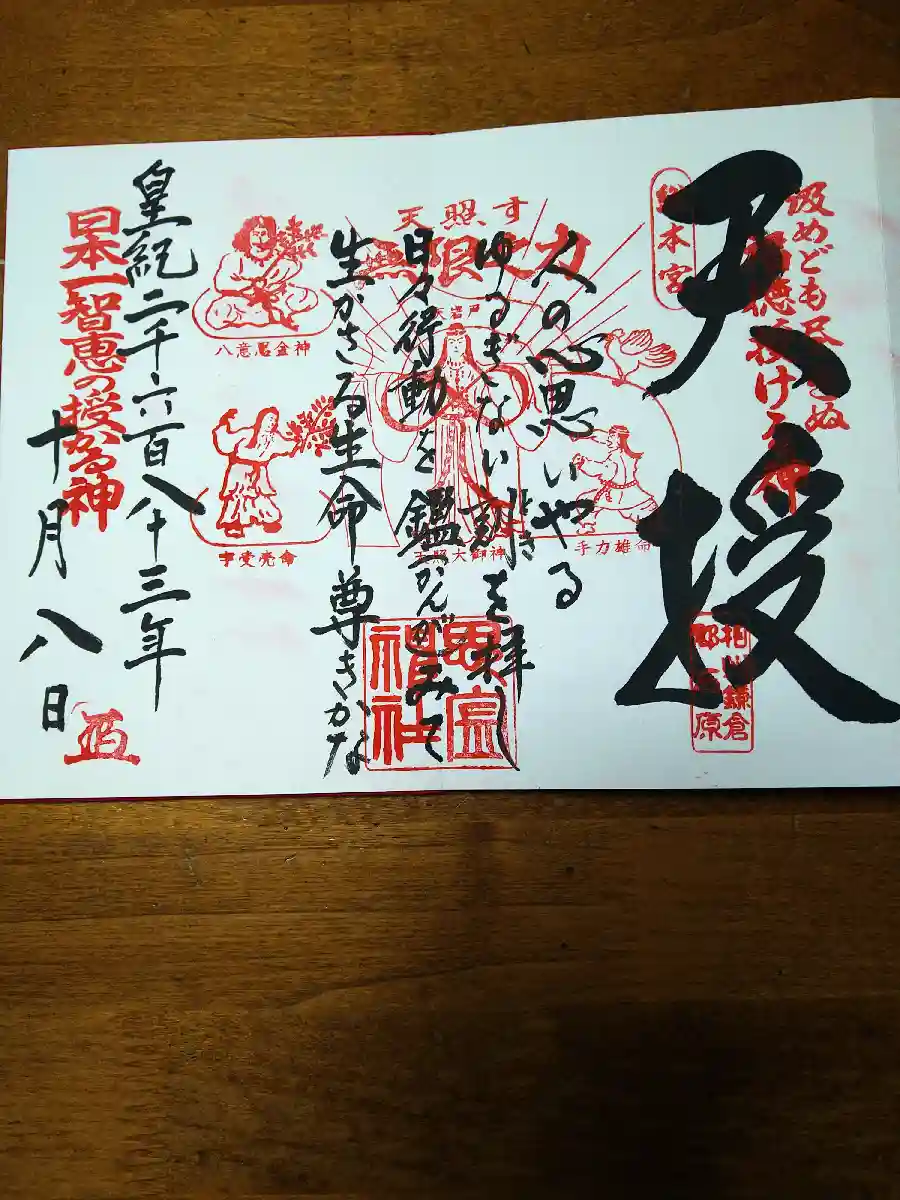 汲めども尽きぬ
福徳授ける神
天授
総本宮
相州鎌倉
郡
原
天照す
無限之力
天岩戸
八意思金神
宇受売命
天照大御神
手力雄命
人の心思いやる
ゆるぎない
を拝し
日々行動を鑑かんがみて
生かさる生命尊きかな
思金
神社
皇紀二千六百八十三年
十月八日
日本一智恵の授かる神